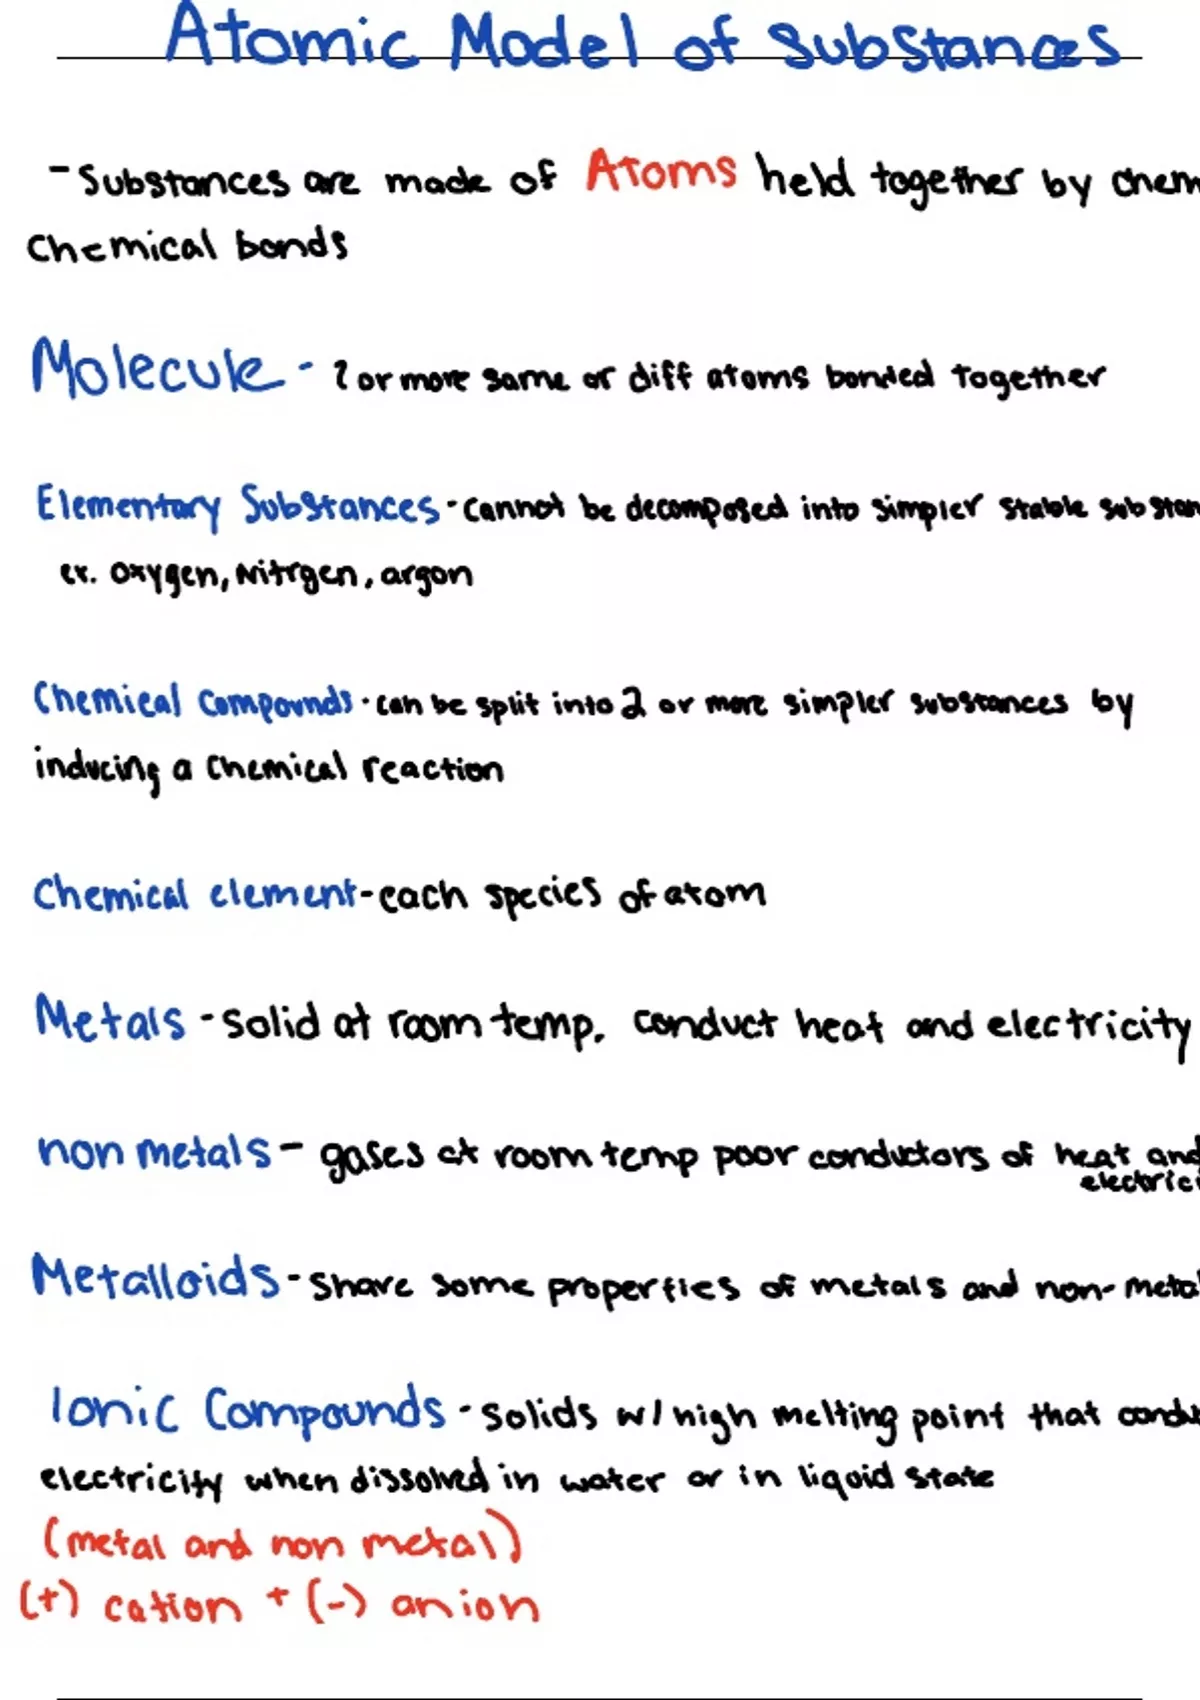 Atomic Model of Substances
- Substances are made of Atoms held together by chem
Chemical bonds
Molecule - 2 or more same or diff atoms bonded together
Elementary Substances - cannot be decomposed into simpler stable substan
ex. oxygen, Nitrgen, argon
Chemical Compounds - can be split into 2 or more simpler substances by
inducing a chemical reaction
Chemical element - each species of atom
Metals - solid at room temp. conduct heat and electricity
non metals - gases at room temp poor conductors of heat and
electrici
Metalloids - share some properties of metals and non-metal
Ionic Compounds - solids w/ high melting point that condu
electricity when dissolved in water or in liquid state
(metal and non metal)
(+) cation + (-) anion